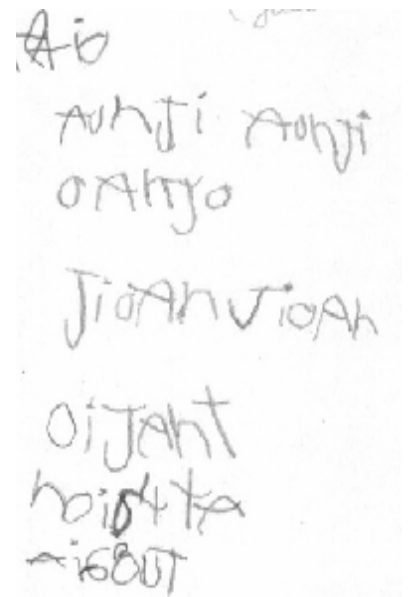 Aio
AUhJi AUhJi
OAhJO
JiOAh JiOAh
OiJAht
hoi84tA
Ai68UT